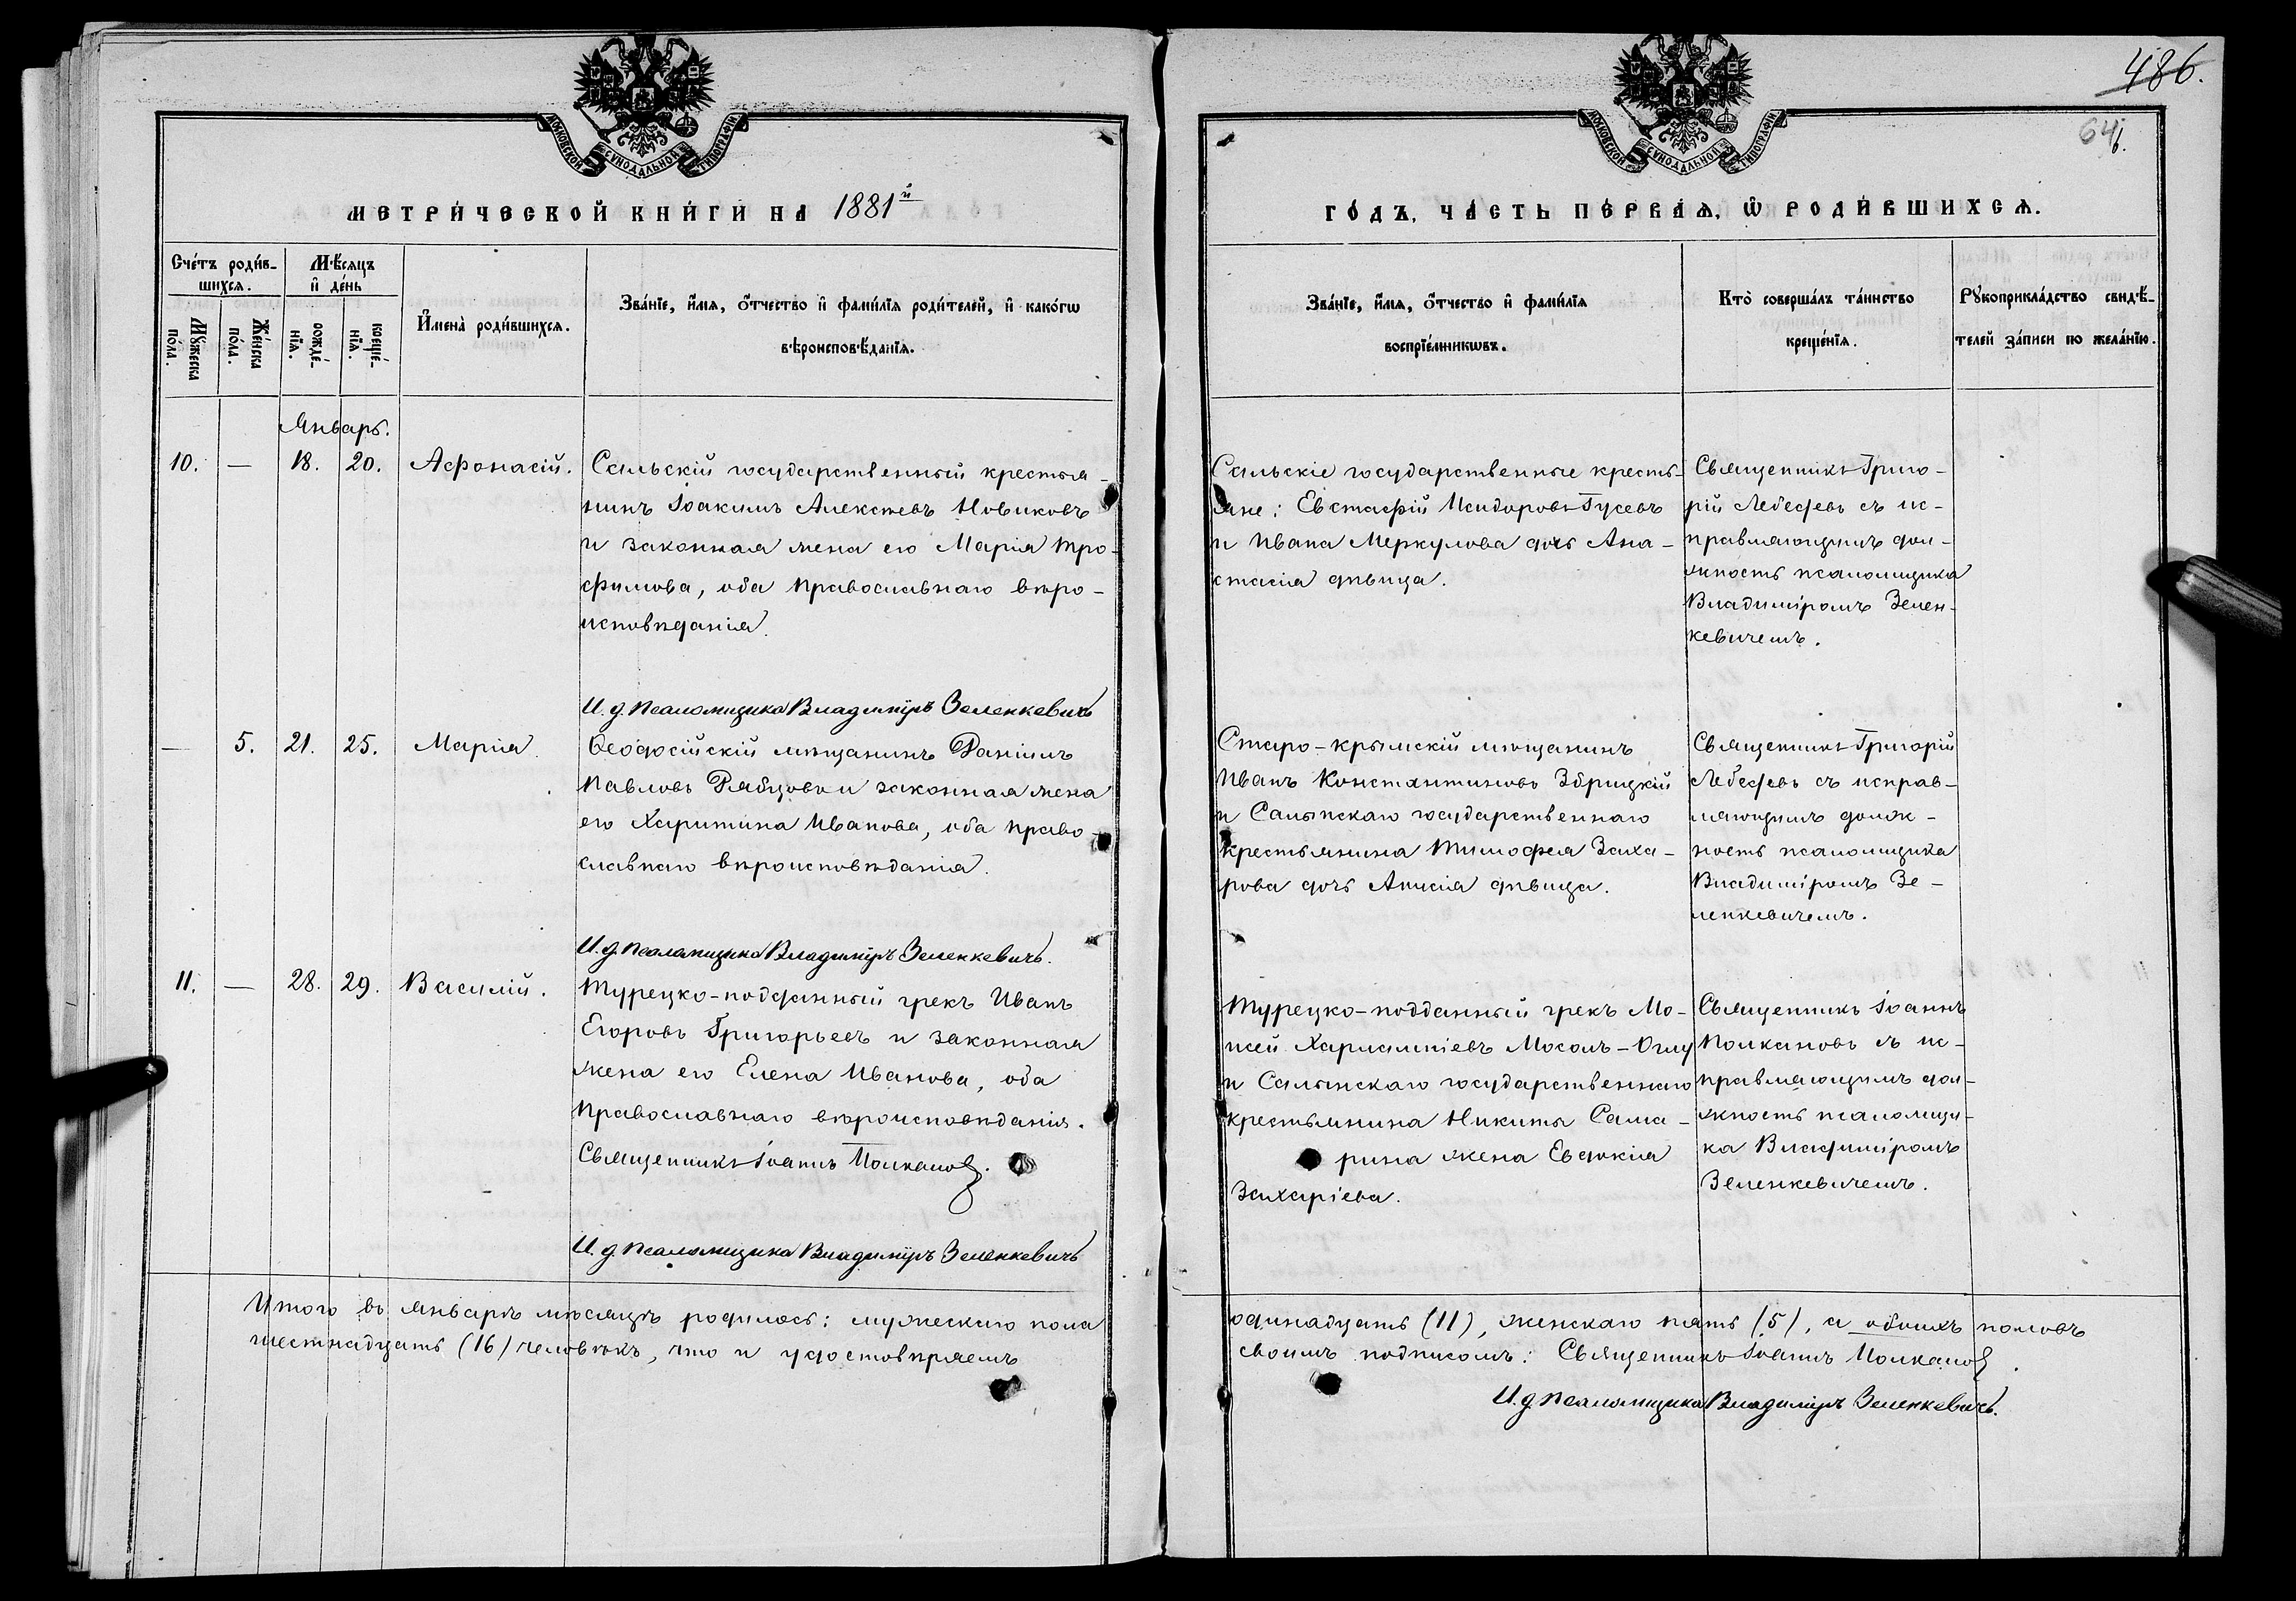 486.
64б.
МОСКОВСКОЙ СѴНОДАЛЬНОЙ ТИПОГРАФІИ
МОСКОВСКОЙ СѴНОДАЛЬНОЙ ТИПОГРАФІИ
МЕТРИ́ЧЕСКОЙ КНИ́ГИ НА 1881й
ГО́ДЪ, ЧА́СТЬ ПЕ́РВАѦ, Ѡ҆ РОДИ́ВШИХСѦ.
Сче́тъ роди́в-
шихсѧ.
Мꙋ́жеска по́ла.
Же́нска по́ла.
Мѣ́сѧцъ
и҆ де́нь
рожде́-нїѧ.
креще́-нїѧ.
И҆мена̀ роди́вшихсѧ.
Зва́нїе, и҆́мѧ, ѻ҆́тчество и҆ фами́лїѧ роди́телей, и҆ како́гѡ
вѣроисповѣ́данїѧ.
Зва́нїе, и҆́мѧ, ѻ҆́тчество и҆ фами́лїѧ
воспрїе́мникѡвъ.
Кто̀ соверша́лъ та́инство
креще́нїѧ.
Рꙋкоприкла́дство свидѣ́-
телей за́писи по жела́нїю.
Январь.
10. — 18. 20. Афонасій.
Сальскій государственный крестья-
нинъ Іоакимъ Алексѣевъ Новиковъ
и законная жена его Марія Тро-
фимова, оба православнаго вѣро-
исповѣданія.
И. д. псаломщика Владиміръ Зеленкевичъ
Сальскіе государственные кресть-
яне: Евстафій Исидоровъ Гусевъ
и Ивана Меркулова дочь Ана-
стасія дѣвица.
Священникъ Григо-
рій Лебедевъ съ ис-
правляющимъ дол-
жность псаломщика
Владиміромъ Зелен-
кевичемъ.
— 5. 21. 25. Марія
Ѳеодосійскій мѣщанинъ Даніилъ
Павловъ Рябцовъ и законная жена
его Харитина Иванова, оба право-
славнаго вѣроисповѣданія.
И. д. псаломщика Владиміръ Зеленкевичъ.
Старо-крымскій мѣщанинъ
Иванъ Константиновъ Збрицкій
и Салынскаго государственнаго
крестьянина Тимофея Заха-
рова дочь Анисія дѣвица.
Священникъ Григорій
Лебедевъ съ исправ-
ляющимъ долж-
ность псаломщика
Владиміромъ Зе-
ленкевичемъ.
11. — 28. 29. Василій.
Турецко-подданный грекъ Иванъ
Егоровъ Григорьевъ и законная
жена его Елена Иванова, оба
православнаго вѣроисповѣданія.
Священникъ Іоаннъ Полкановъ.
И. д. псаломщика Владиміръ Зеленкевичъ
Турецко-подданный грекъ Мо-
исей Харлампіевъ Мосолъ-Оглу
и Салынскаго государственнаго
крестьянина Никиты Сама-
рина жена Евдокія
Захаріева.
Священникъ Іоаннъ
Полкановъ съ ис-
правляющимъ дол-
жность псаломщи-
ка Владиміромъ
Зеленкевичемъ.
Итого въ январѣ мѣсяцѣ родилось: мужескаго пола
одинадцать (11), женскаго пять (5), а обоихъ половъ
шестнадцать (16) человѣкъ, что и удостовѣряемъ
своимъ подписомъ: Священникъ Іоаннъ Полкановъ.
И. д. псаломщика Владиміръ Зеленкевичъ.